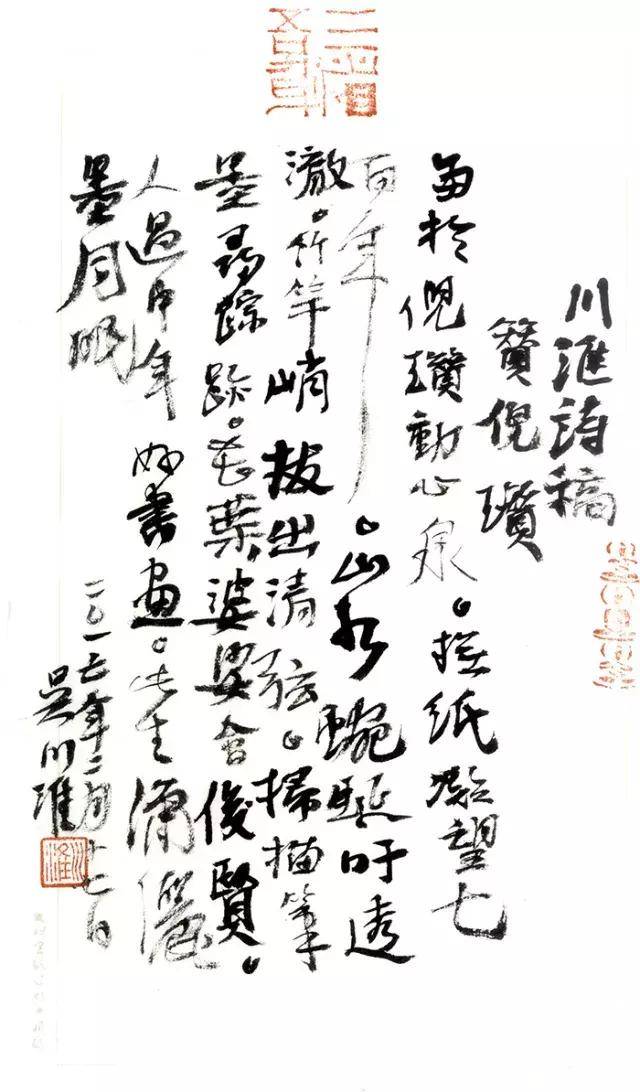 川淮詩稿
贊倪瓚
每於倪瓚動心泉。撫紙凝望七
百年。山水蜿蜒吁透
澈。竹竿峭拔出清弦。掃描筆
墨尋踪跡。葉婆娑會俊賢。
人過中年好書畫。此生瀟灑
墨同眠
二〇一七年二月十七日
吴川淮